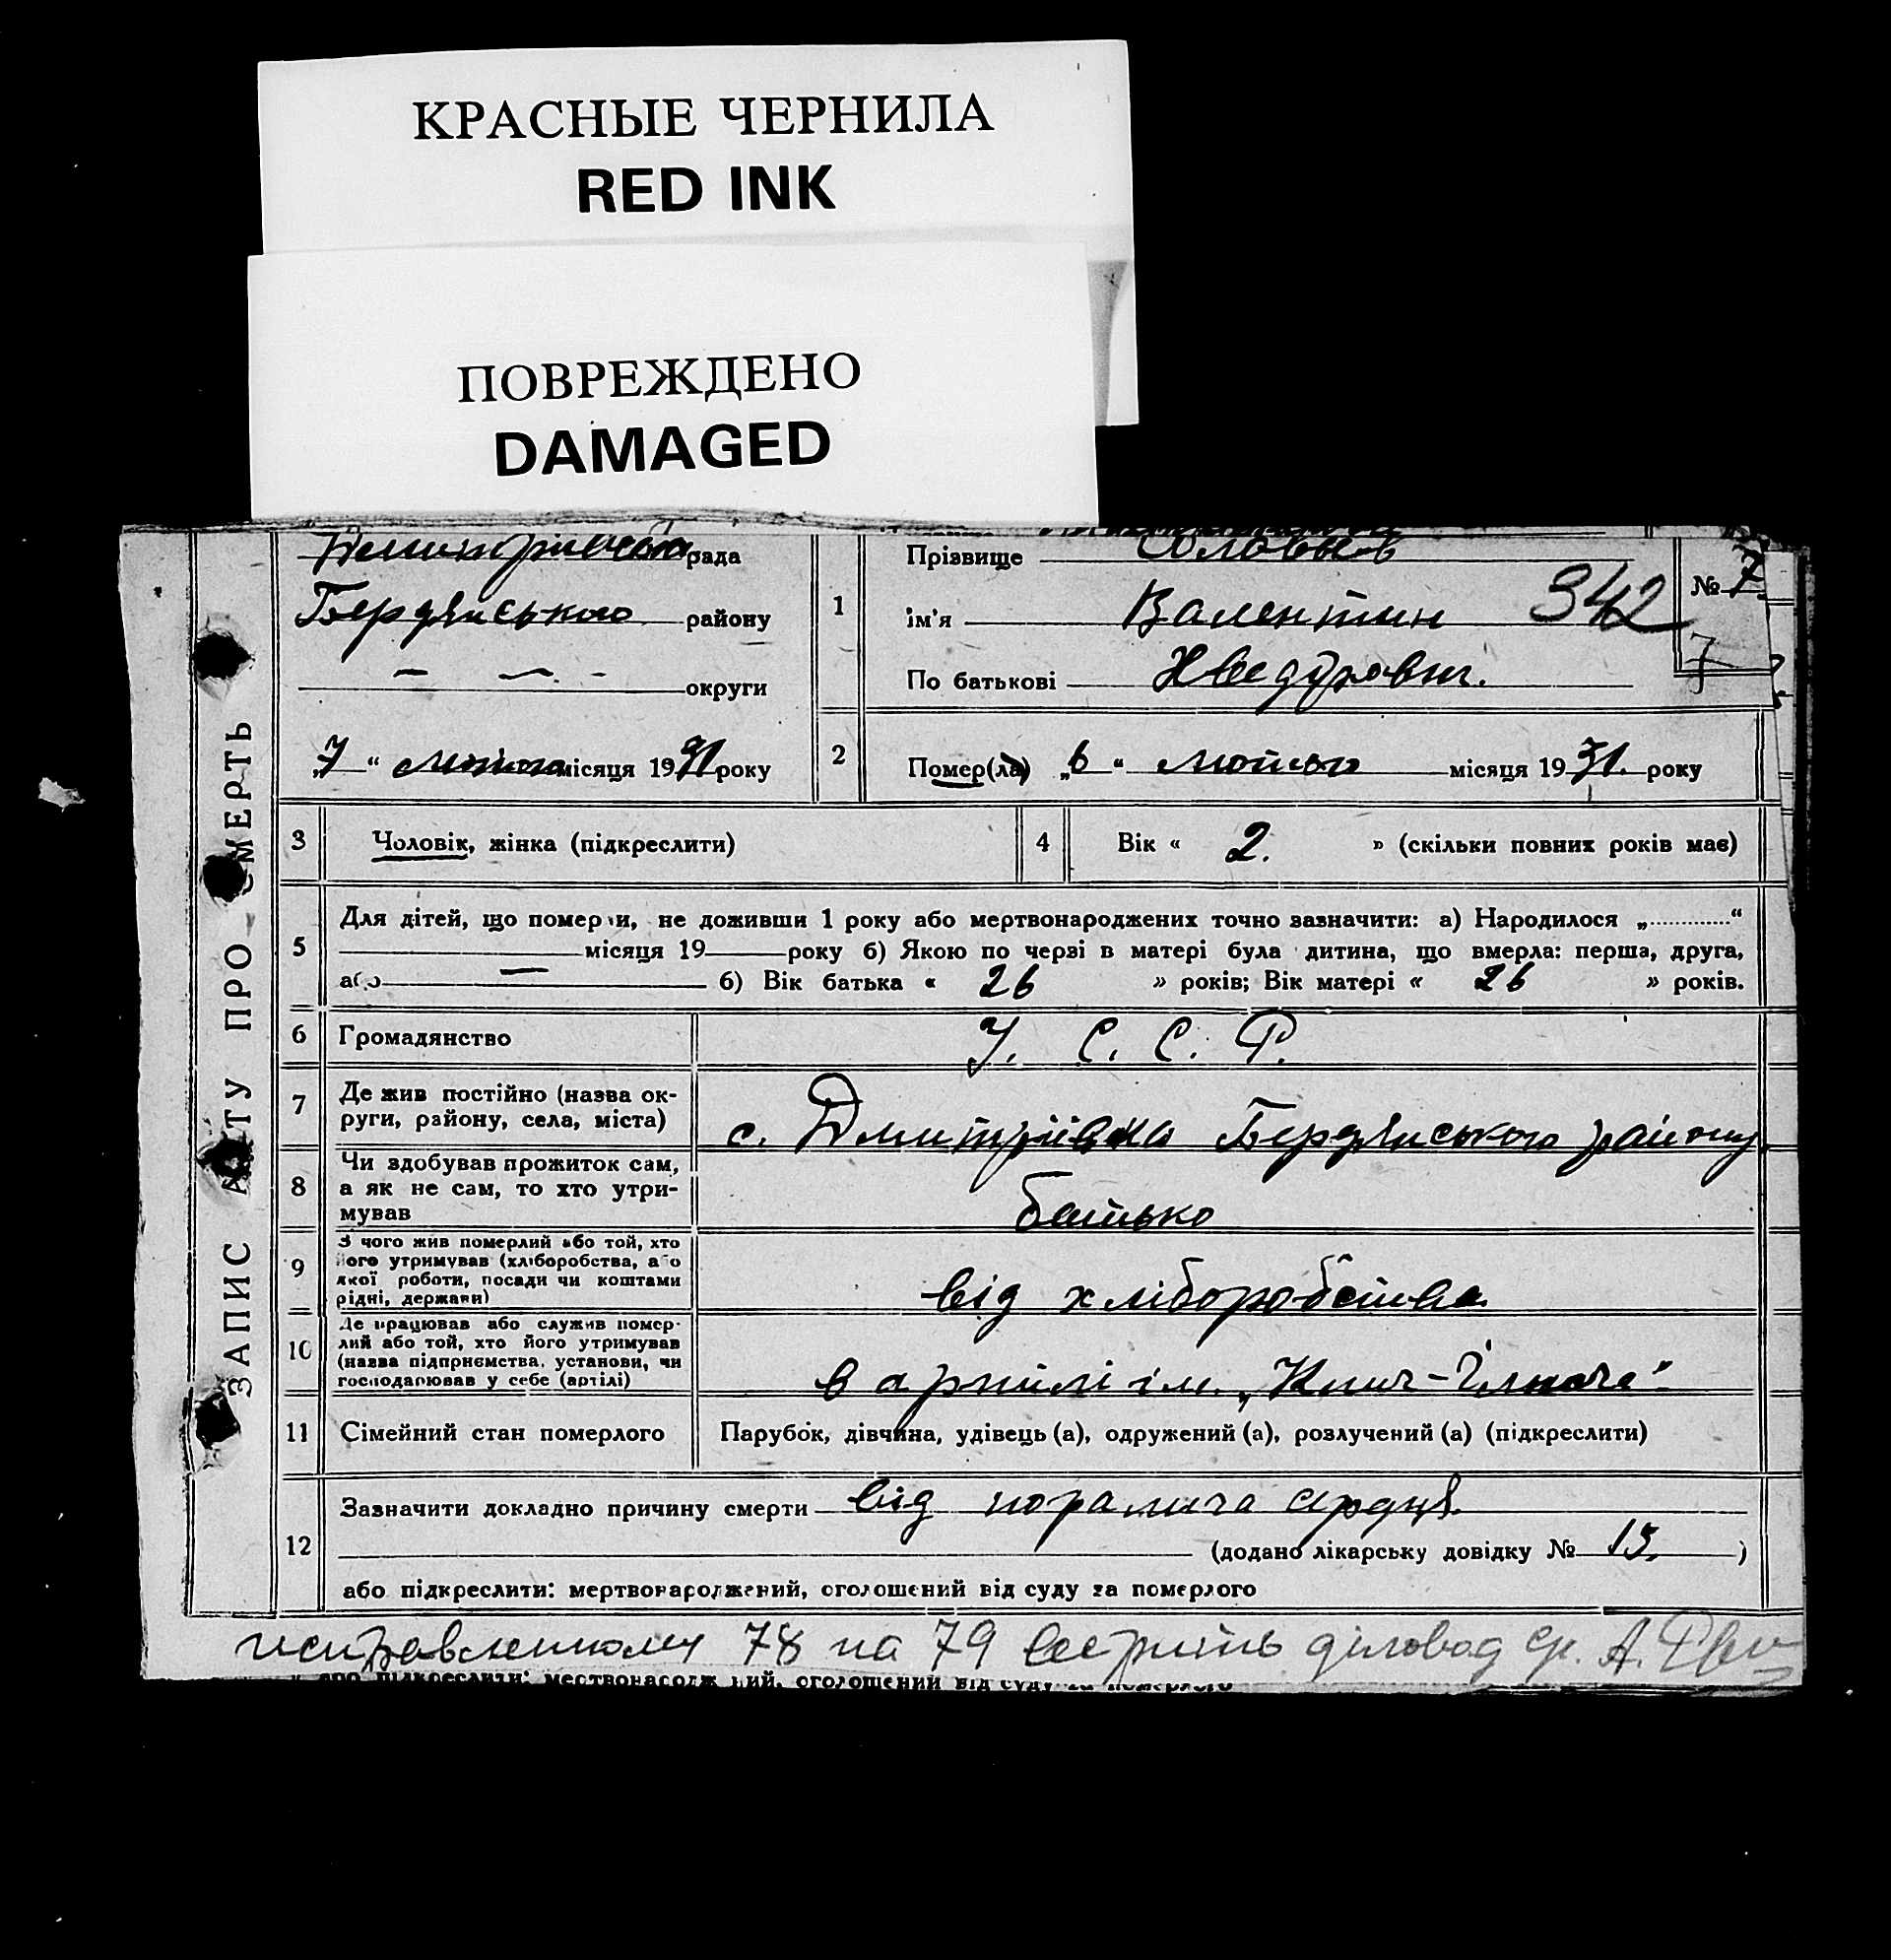 КРАСНЫЕ ЧЕРНИЛА
RED INK
ПОВРЕЖДЕНО
DAMAGED
ЗАПИС АКТУ ПРО СМЕРТЬ
рада
Бердянського району
— — - округи
„7“ лютого місяця 1931 року
1
Прізвище
ім'я Валентин 342
По батькові
№ 7
7
2 Помер(ла) „6“ лютого місяця 1931. року
3 Чоловік, жінка (підкреслити)
4 Вік « 2. » (скільки повних років має)
5 Для дітей, що померли, не доживши 1 року або мертвонароджених точно зазначити: а) Народилося „............“
місяця 19 року б) Якою по черзі в матері була дитина, що вмерла: перша, друга,
або — б) Вік батька « 26 » років; Вік матері « 26 » років.
6 Громадянство У. С. С. Р.
7 Де жив постійно (назва ок-
руги, району, села, міста) с. Дмитрівка Бердянського району
8 Чи здобував прожиток сам,
а як не сам, то хто утри-
мував батько
9 З чого жив померлий або той, хто
його утримував (хліборобства, або
якої роботи, посади чи коштами
рідні, держави) від хліборобства
10 Де працював або служив помер-
лий або той, хто його утримував
(назва підприємства, установи, чи
господарював у себе (артілі) в артілі ім.
11 Сімейний стан померлого Парубок, дівчина, удівець (а), одружений (а), розлучений (а) (підкреслити)
12 Зазначити докладно причину смерти від порамича сердця.
(додано лікарську довідку № 13. )
або підкреслити: мертвонароджений, оголошений від суду за померлого
исправленному 78 на 79 діловод
або підкреслити: мертвонароджений, оголошений від суду за померлого